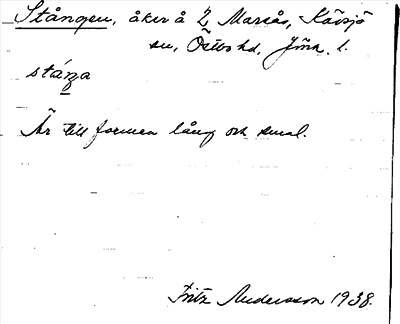 Stången, åker å 2 Marsås, Kävsjö
sn, Östbo hd, Jön. l.
stáŋa
Är till formen lång och smal.
Fritz Andersson 1938.